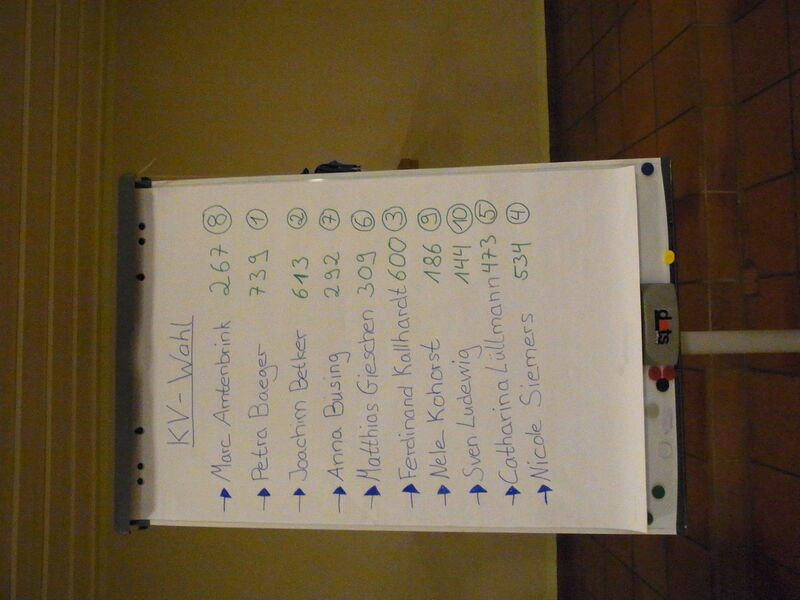 KV-Wahl
→ Marc Amtenbrink 267 ⑧
→ Petra Baeger 739 ①
→ Joachim Betker 613 ②
→ Anna Büsing 292 ⑦
→ Matthias Gieschen 309 ⑥
→ Ferdinand Kallhardt 600 ③
→ Nele Kohorst 186 ⑨
→ Sven Ludewig 144 ⑩
→ Catharina Lüllmann 473 ⑤
→ Nicole Siemers 534 ④
dots